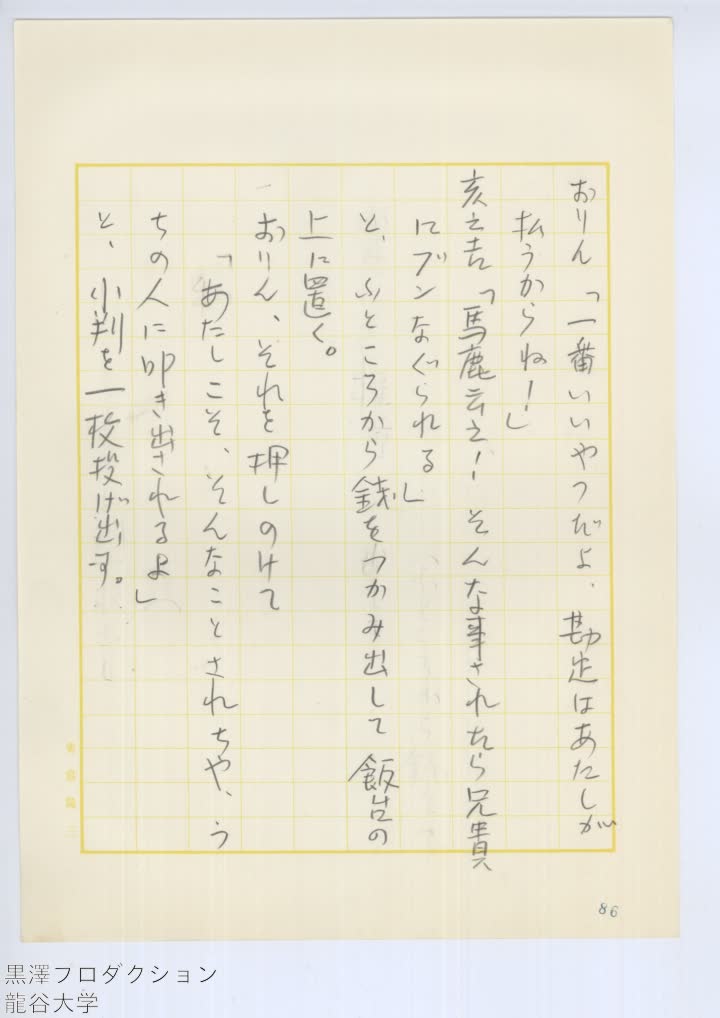 おりん「一番いいやつだよ、勘定はあたしが
払うからね！」
亥之吉「馬鹿云え！そんな事されたら兄貴
にブンなぐられる」
と、ふところから銭をつかみ出して飯台の
上に置く。
おりん、それを押しのけて
「あたしこそ、そんなことされちゃ、う
ちの人に叩き出されるよ」
と、小判を一枚投げ出す。
86
黒澤プロダクション
龍谷大学